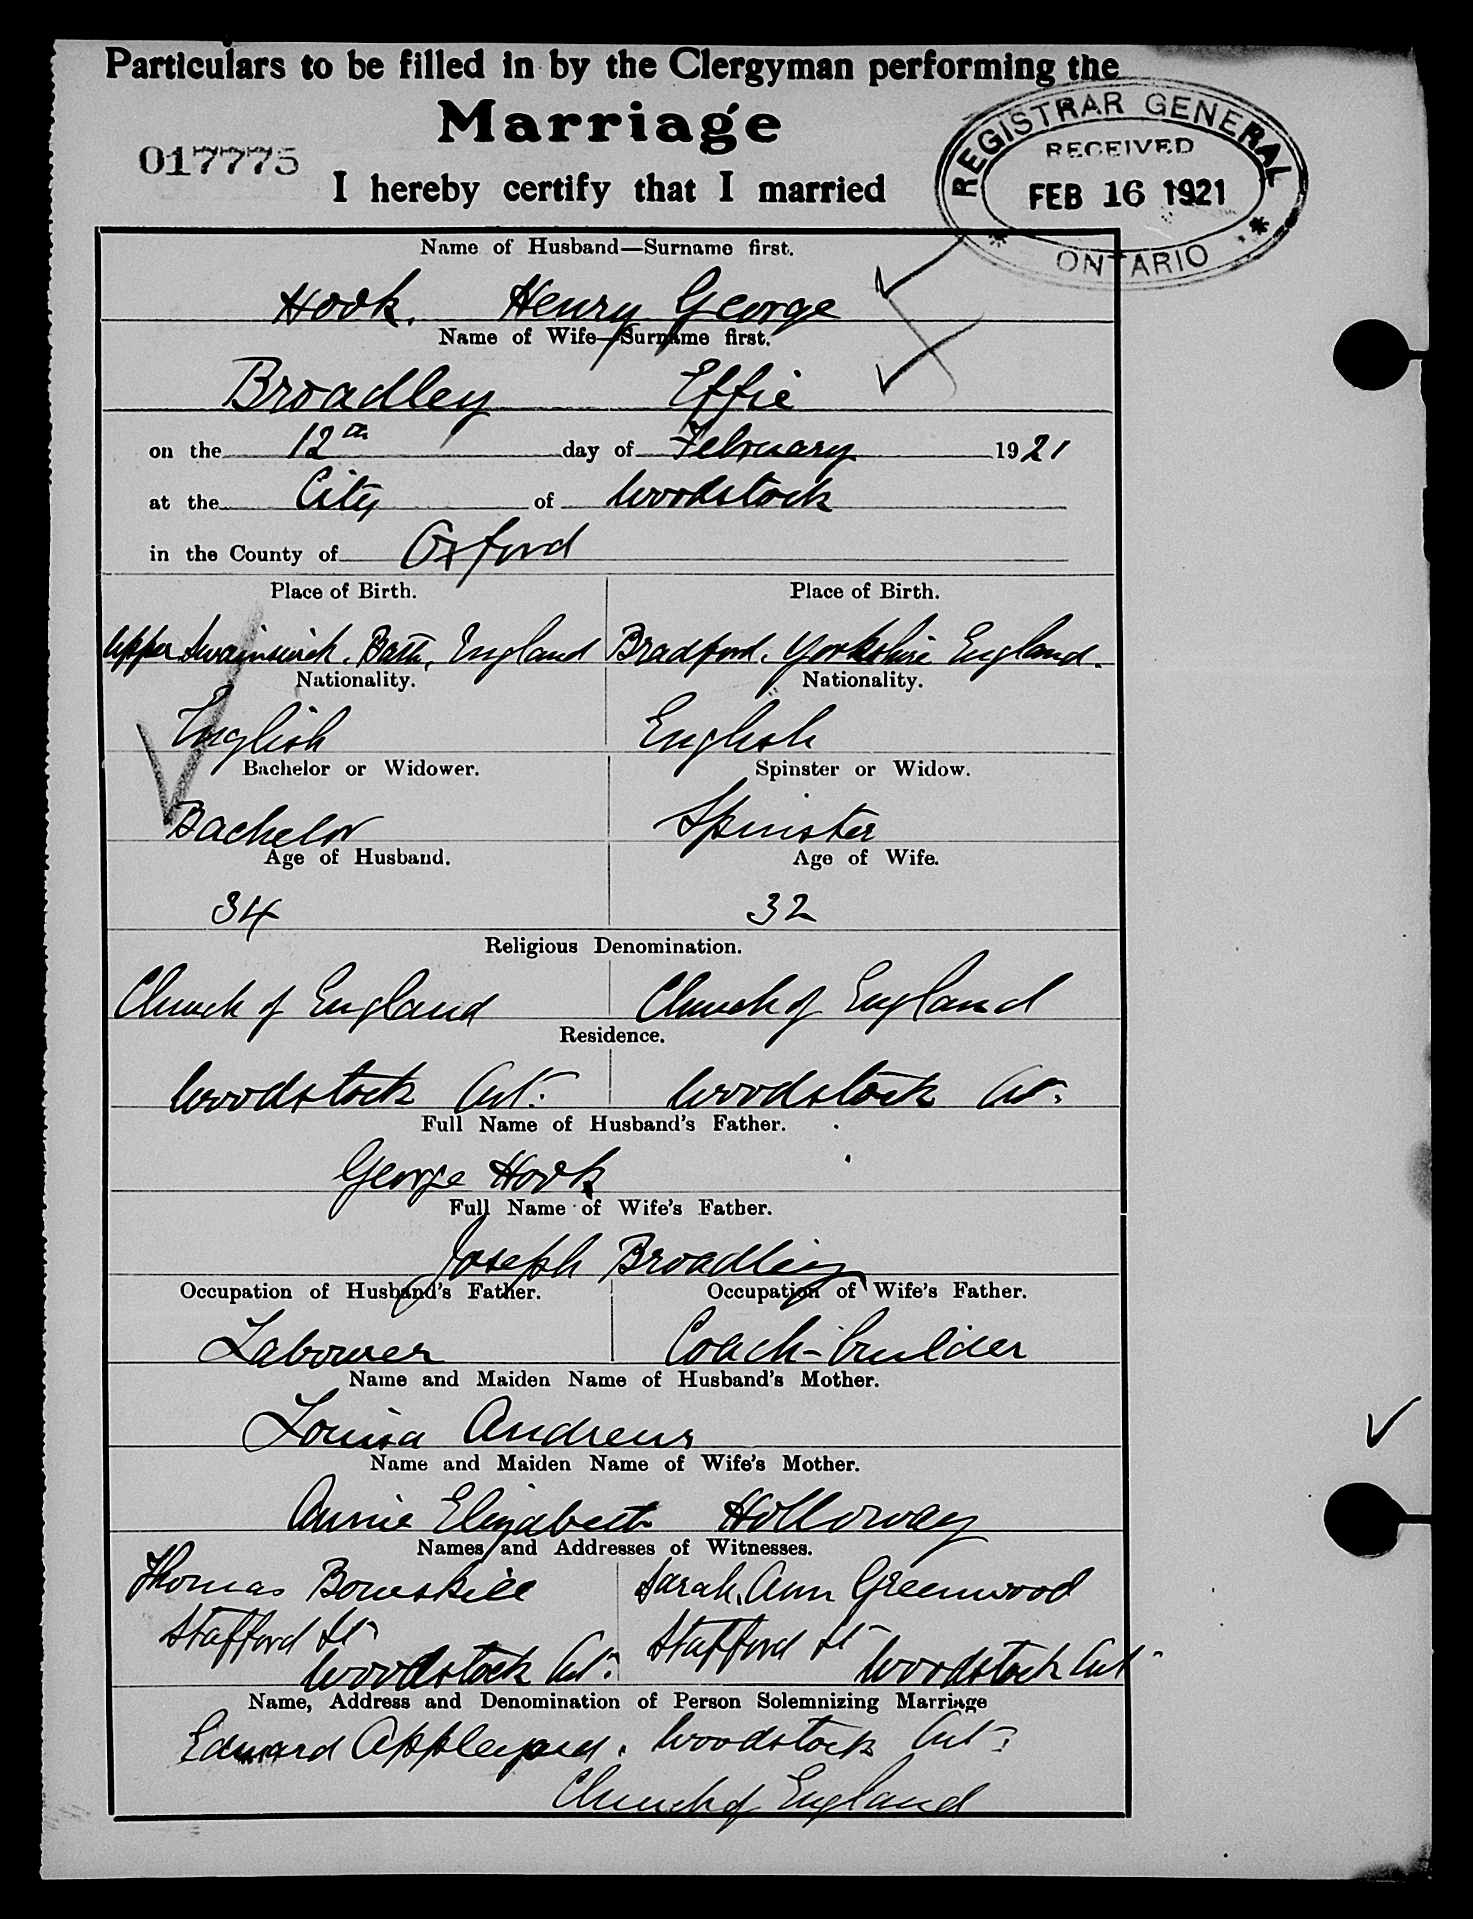 Particulars to be filled in by the Clergyman performing the
Marriage
017775
I hereby certify that I married
REGISTRAR GENERAL
RECEIVED
FEB 16 1921
ONTARIO
Name of Husband—Surname first.
Hook. Henry George
Name of Wife—Surname first.
Broadley Effie
on the 12th day of February 1921
at the City of Woodstock
in the County of Oxford
Place of Birth. Place of Birth.
Upper Swainswick. Bath, England Bradford. Yorkshire England.
Nationality. Nationality.
English English
Bachelor or Widower. Spinster or Widow.
Bachelor Spinster
Age of Husband. Age of Wife.
34 32
Religious Denomination.
Church of England Church of England
Residence.
Woodstock Ont. Woodstock Ont.
Full Name of Husband's Father.
George Hook
Full Name of Wife's Father.
Joseph Broadley
Occupation of Husband's Father. Occupation of Wife's Father.
Labourer Coach-builder
Name and Maiden Name of Husband's Mother.
Louisa Andrews
Name and Maiden Name of Wife's Mother.
Annie Elizabeth Holloway
Names and Addresses of Witnesses.
Thomas Bowskill Sarah Ann Greenwood
Stafford St Stafford St
Woodstock Ont. Woodstock Ont
Name, Address and Denomination of Person Solemnizing Marriage
Edward Appleyard. Woodstock Ont.
Church of England